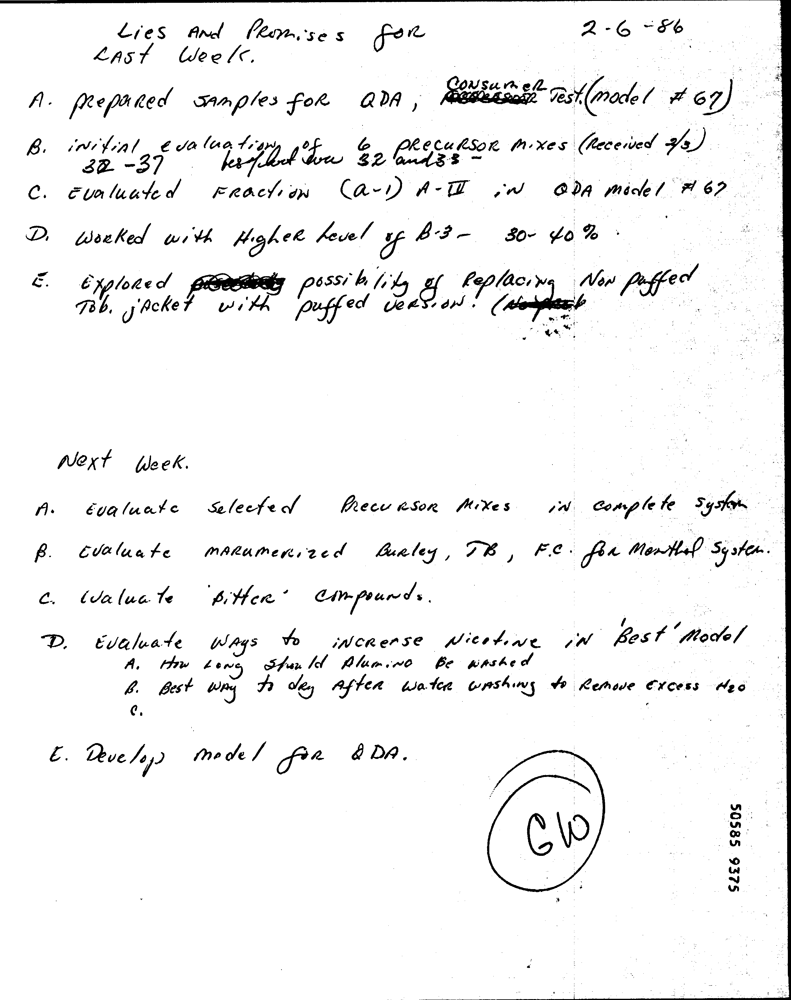 Lies And Promises for 2-6-86
Last Week.
A. prepared samples for QDA, Consumer Test. (model #67)
B. initial evaluation of 6 precursor mixes (Received 2/3)
32-37 32 and 33 -
C. Evaluated Fraction (a-1) A-III in QDA model #67
D. Worked with Higher Level of B-3 - 30-40%.
E. Explored possibility of Replacing Non puffed
Tob. jacket with puffed version. (
Next Week.
A. Evaluate Selected Precursor Mixes in complete System
B. Evaluate marumerized Burley, TB, F.C. for Menthol System.
C. Evaluate 'Bitter' Compounds.
D. Evaluate Ways to increase Nicotine in 'Best' Model
A. How Long Should Alumino Be washed
B. Best way to dry After water washing to Remove Excess H2O
C.
E. Develop model for QDA.
GW
50585 9375